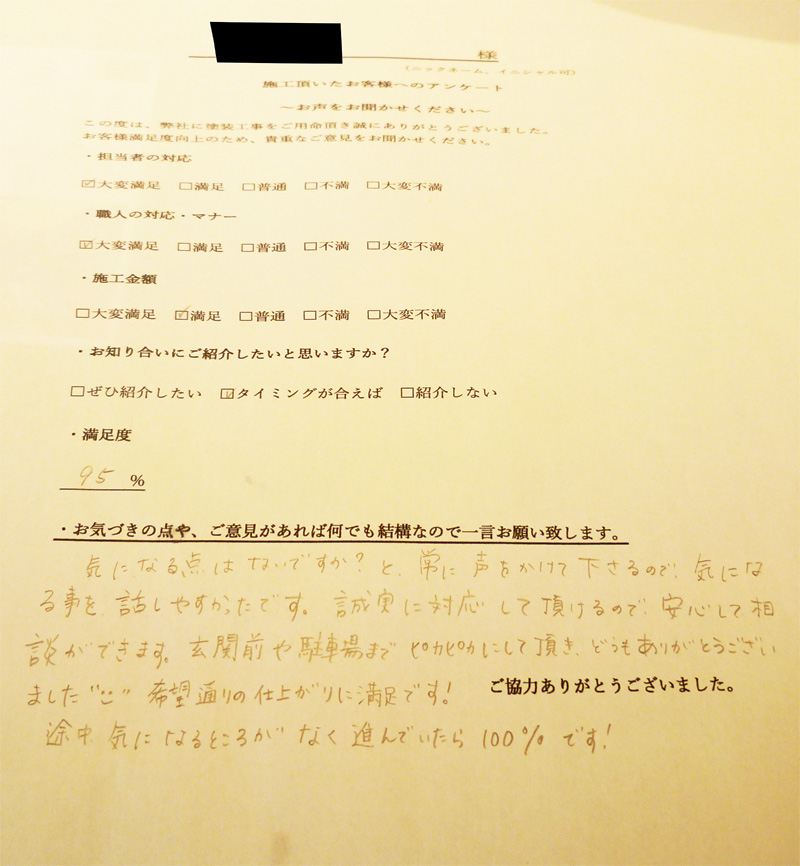 様
(ニックネーム、イニシャル可)
施工頂いたお客様へのアンケート
～お声をお聞かせください～
この度は、弊社に塗装工事をご用命頂き誠にありがとうございました。
お客様満足度向上のため、貴重なご意見をお聞かせください。
・担当者の対応
☑大変満足 □満足 □普通 □不満 □大変不満
・職人の対応・マナー
☑大変満足 □満足 □普通 □不満 □大変不満
・施工金額
□大変満足 ☑満足 □普通 □不満 □大変不満
・お知り合いにご紹介したいと思いますか？
□ぜひ紹介したい ☑タイミングが合えば □紹介しない
・満足度
95 %
・お気づきの点や、ご意見があれば何でも結構なので一言お願い致します。
気になる点はないですか？と、常に声をかけて下さるので、気にな
る事を話しやすかったです。誠実に対応して頂けるので、安心して相
談ができます。玄関前や駐車場までピカピカにして頂き、どうもありがとうござい
ました 希望通りの仕上がりに満足です！
ご協力ありがとうございました。
途中、気になるところがなく進んでいたら100%です！